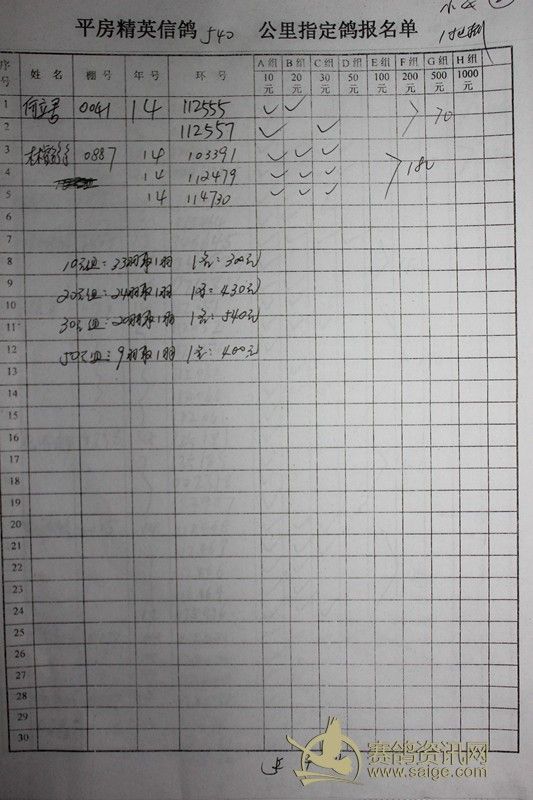 平房精英信鸽 540 公里指定鸽报名单
序号 姓名 棚号 年号 环号 A组10元 B组20元 C组30元 D组50元 E组100元 F组200元 G组500元 H组1000元
1 0041 14 112555 ✓ ✓
2 112557 ✓ ✓ 70
3 0887 14 103391 ✓ ✓ ✓
4 14 112479 ✓ ✓ ✓ 180
5 14 114730 ✓ ✓ ✓
6
7
8 10元组：33羽取1羽 1名：300元
9 20元组：24羽取1羽 1名：430元
10
11 30元组：20羽取1羽 1名：540元
12 50元组：9羽取1羽 1名：400元
13
14
15
16
17
18
19
20
21
22
23
24
25
26
27
28
29
30
赛鸽资讯网
www.saige.com